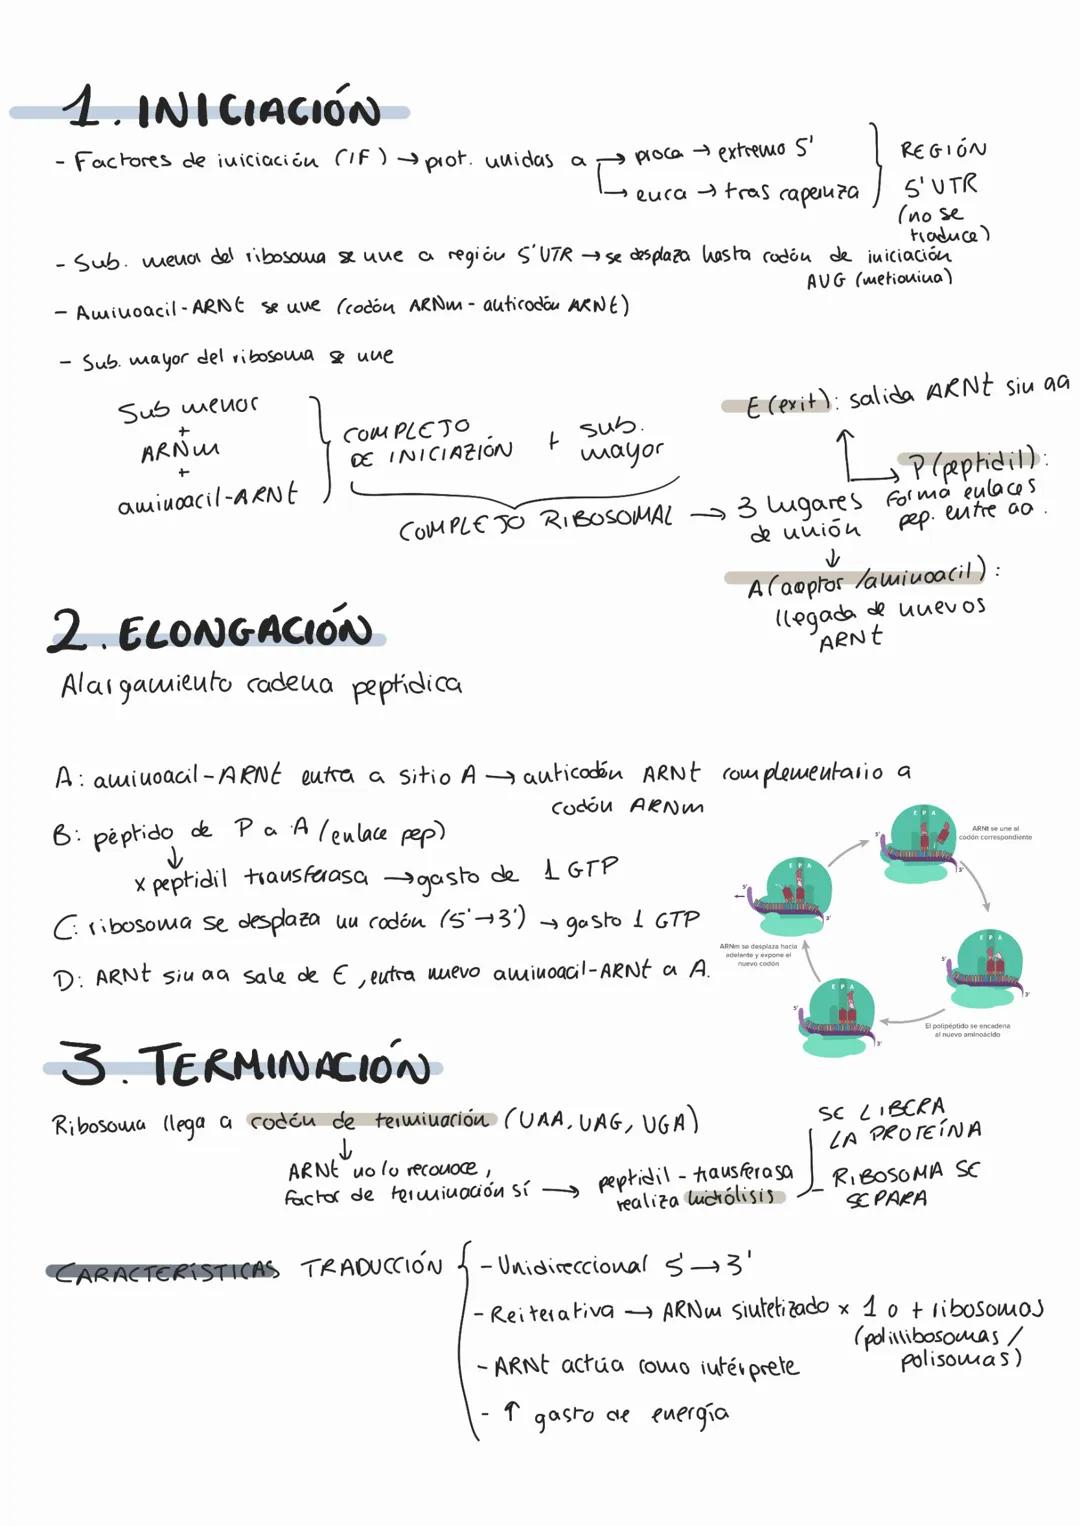 1. INICIACIÓN
- Factores de iniciación (IF) → prot. unidas a → proca → extremo 5'
→ euca → tras caperuza
REGIÓN
5' UTR
(no se
traduce)
- Sub. menor del ribosoma se une a región 5'UTR → se desplaza hasta codón de iniciación
AUG (metionina)
- Aminoacil-ARNt se une (codón ARNm - anticodón ARNt)
- Sub. mayor del ribosoma se une
Sub menor
+
ARNm
+
aminoacil-ARNt
COMPLEJO
DE INICIAZIÓN
+ sub.
mayor
COMPLEJO RIBOSOMAL → 3 lugares
de unión
E (exit): salida ARNt sin aa
P (peptidil):
Forma enlaces
pep. entre aa.
A (aceptor /aminoacil):
llegada de nuevos
ARNt
2. ELONGACIÓN
Alargamiento cadena peptídica
A: aminoacil-ARNt entra a sitio A → anticodón ARNt complementario a
codón ARNm
B: péptido de P a A (enlace pep)
↓
x peptidil transferasa → gasto de 1 GTP
C: ribosoma se desplaza un codón (5'→3') → gasto 1 GTP
D: ARNt sin aa sale de E, entra nuevo aminoacil-ARNt a A.
E P A
ARNt se une al
codón correspondiente
5'
3'
E P A
5'
3'
El polipéptido se encadena
al nuevo aminoácido
E P A
5'
3'
ARNm se desplaza hacia
adelante y expone el
nuevo codón
E P A
5'
3'
3. TERMINACIÓN
Ribosoma llega a codón de terminación (UAA, UAG, UGA)
↓
ARNt no lo reconoce,
factor de terminación sí → peptidil-transferasa
realiza hidrólisis
SE LIBERA
LA PROTEÍNA
RIBOSOMA SE
SEPARA
CARACTERÍSTICAS TRADUCCIÓN
- Unidireccional 5'→3'
- Reiterativa → ARNm sintetizado x 1 o + ribosomas
(polirribosomas /
polisomas)
- ARNt actúa como intérprete
- ↑ gasto de energía